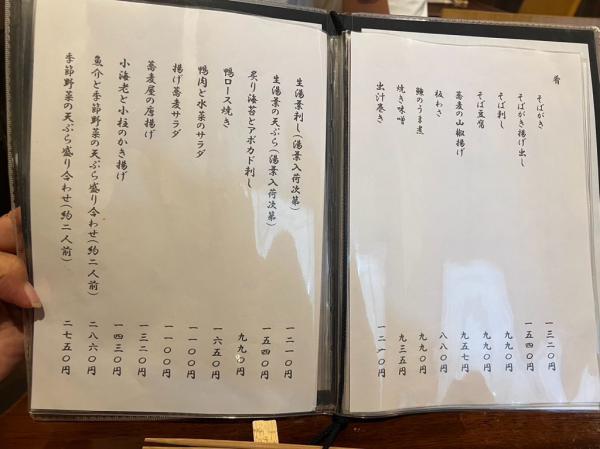 肴
そばがき 一三二〇円
そばがき揚げ出し 一五四〇円
そば刺し 九九〇円
そば豆腐 九九〇円
蕎麦の山椒揚げ 九五七円
板わさ 八八〇円
鰊のうま煮 九九〇円
焼き味噌 九三五円
出汁巻き 一二一〇円
生湯葉刺し(湯葉入荷次第) 一二一〇円
生湯葉の天ぷら(湯葉入荷次第) 一五四〇円
炙り海苔とアボカド刺し 九九〇円
鴨ロース焼き 一六五〇円
鴨肉と水菜のサラダ 一一〇〇円
揚げ蕎麦サラダ 一一〇〇円
蕎麦屋の唐揚げ 一三二〇円
小海老と小柱のかき揚げ 一四三〇円
魚介と季節野菜の天ぷら盛り合わせ(約二人前) 二八六〇円
季節野菜の天ぷら盛り合わせ(約二人前) 二七五〇円